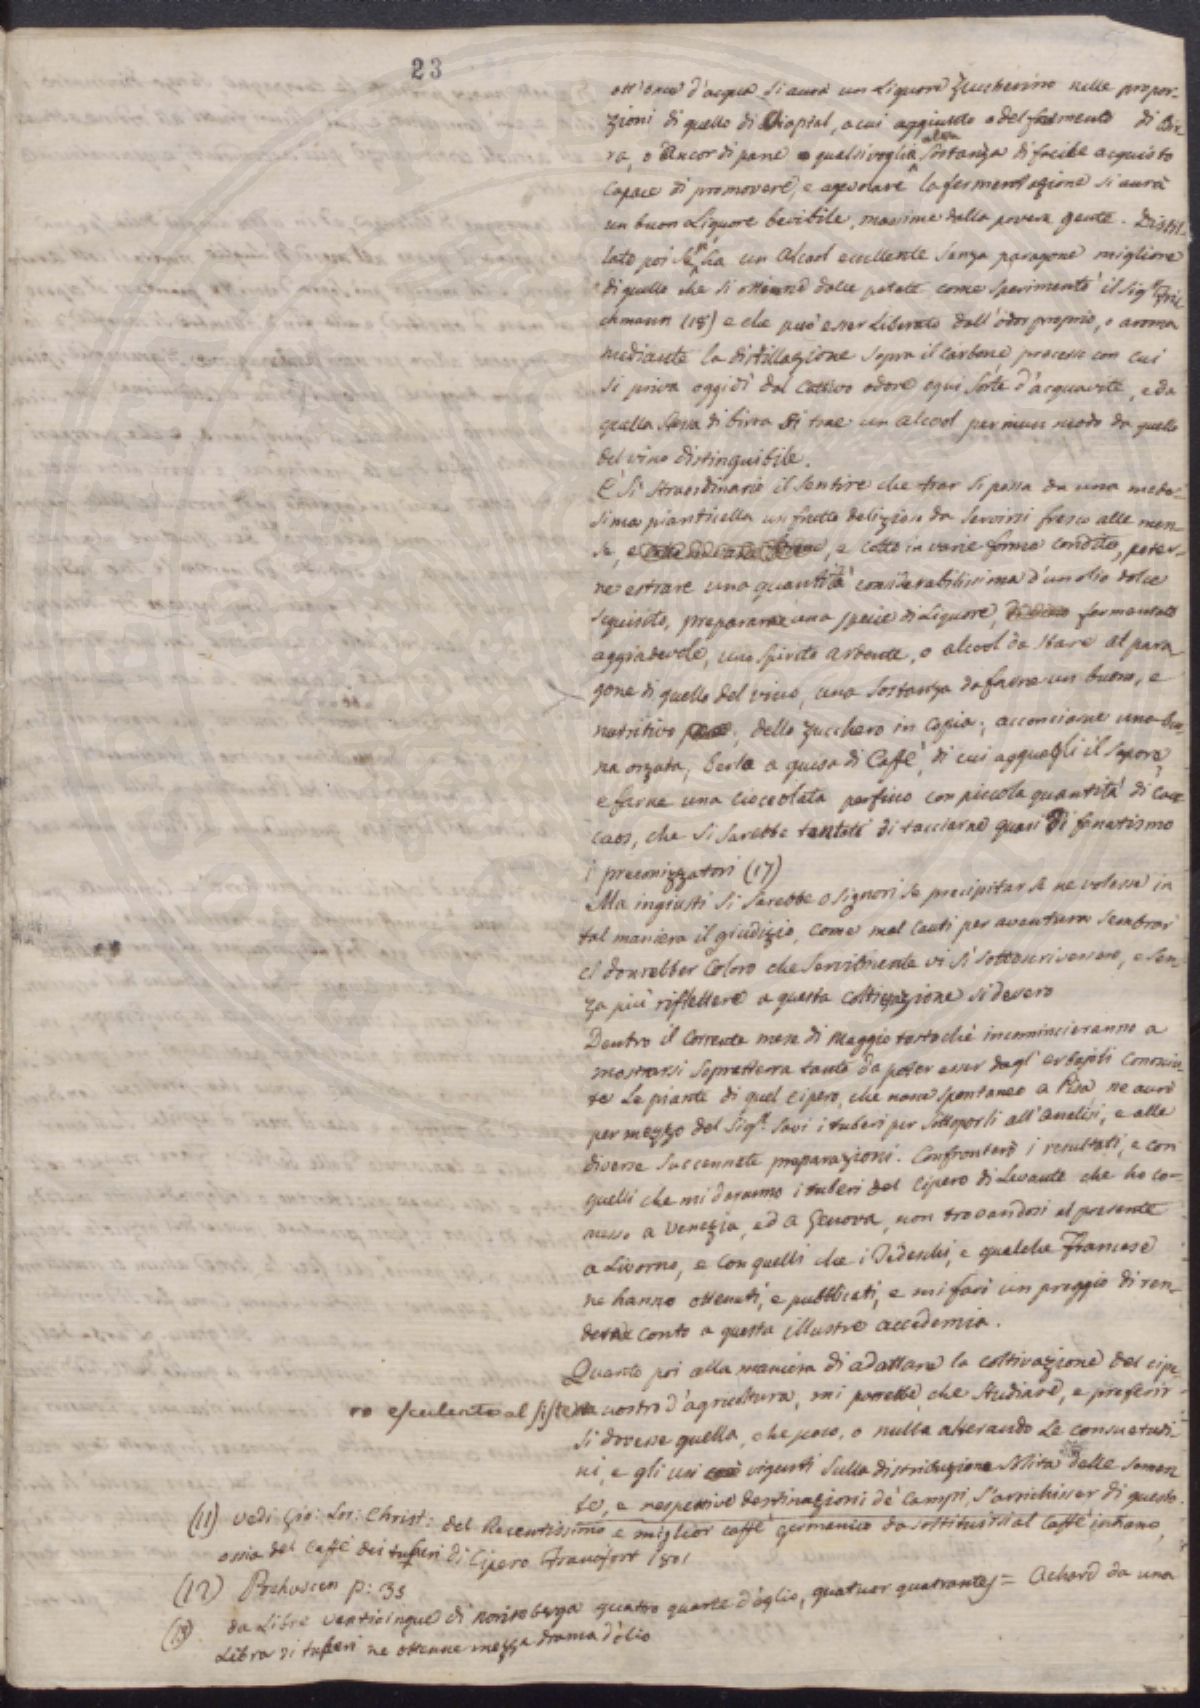 23
ott'once d'acqua si aurà un Liquore Zuccherino nelle propor-
zioni di quello di Chaptal, a cui aggiunto o del fermento di Bir-
ra, o ancor di pane o qualsivoglia altra sostanza di facile acquisto
capace di promovere, e agevolare la fermentazione si aurà
un buon Liquore bevibile, massime dalla povera gente. Distil-
lato poi si ha un Alcool eccellente senza paragone migliore
di quello che si ottiene dalle patate come sperimentò il Sigr.
(18) e che può esser liberato dall'odor proprio, o aroma
mediante la distillazione sopra il carbone processo con cui
si priva oggidì dal cattivo odore ogni sorte d'acquavite, e da
quella stessa di birra si trae un alcool per niun modo da quello
del vino distinguibile.
È sì straordinario il sentire che trar si possa da una mede-
sima pianticella un frutto delizioso da servirsi fresco alle men-
se, e cotto in varie forme condito, poter-
ne estrarre una quantità considerabilissima d'un olio dolce
squisito, prepararne una specie di Liquore fermentato
aggradevole, uno spirito ardente, o alcool da stare al para-
gone di quello del vino, una sostanza da farne un buono, e
nutritivo pane, dello zucchero in copia, acconciarne una buo-
na orzata, berla a guisa di Caffè, di cui agguagli il sapore,
e farne una cioccolata perfino con piccola quantità di Cac-
caos, che si sarebbe tentati di tacciarne quasi di fanatismo
i preconizzatori (17)
Ma ingiusti si sarebbe o signori se precipitar se ne volesse in
tal maniera il giudizio, come mal cauti per avventura sembrar
ci dovrebber coloro che servilmente vi si sottoscrivessero, e sen-
za più riflettere a questa coltivazione si dessero
Dentro il corrente mese di Maggio tosto chè incomincieranno a
mostrarsi sopratterra tanto da poter esser dagl' erbajoli conosciu-
te le piante di quel cipero, che nasce spontaneo a Pisa ne aurò
per mezzo del Sigr. Savi i tuberi per sottoporli all'analisi, e alle
diverse succennate preparazioni. Confronterò i resultati, e con
quelli che mi daranno i tuberi del cipero di Levante che ho co-
messo a Venezia, ed a Genova, non trovandosi al presente
a Livorno, e con quelli che i Tedeschi, e qualche Francese
ne hanno ottenuti, e pubblicati, e mi farò un preggio di ren-
derne conto a questa illustre accademia.
Quanto poi alla maniera di adattare la coltivazione del cipe-
ro esculento al sistema nostro d'agricoltura, mi parrebbe, che studiare, e preferir-
si dovesse quella, che poco, o nulla alterando le consuetudi-
ni, e gli usi vigenti sulla distribuzione solita delle semen-
te, e respettive destinazioni de' campi, s'arrichisser di questo.
(11) Vedi Gio: Christ: del Recentissimo e miglior caffè germanico da sostituirsi al Caffè indiano,
ossia del Caffè dei tuberi di Cipero Francfort 1801
(12) p: 35
(13) da Libre venticinque di Norimberga quattro quarte d'oglio, quatuor quatrantes = Achard da una
Libra di tuberi ne ottenne mezza drama d'olio